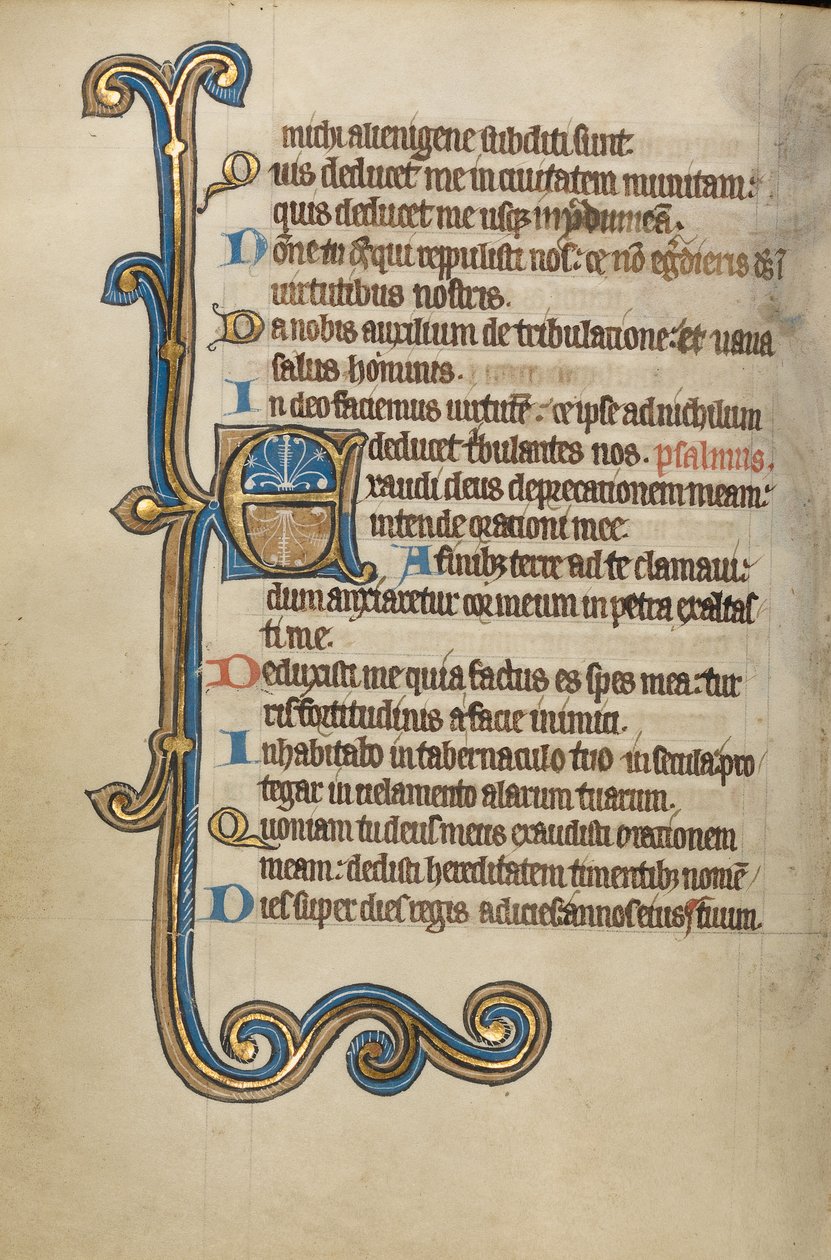 michi alienigene subditi sunt.
Quis deducet me in ciuitatem munitam:
quis deducet me usqꝫ in ydumeā.
Nōne tu dꝰ qui reppulisti nos: ⁊ nō egͣdieris ds̄ ĩ
uirtutibus nostris.
Da nobis auxilium de tribulatione: et uana
salus hominis.
In deo faciemus uirtutē: ⁊ ipse ad nichilum
deducet tͥbulantes nos. psalmus.
Exaudi deus deprecationem meam:
intende orationi mee.
A finibꝫ terre ad te clamaui:
dum anxiaretur cor meum in petra exaltas
ti me.
Deduxisti me quia factus es spes mea: tur
ris fortitudinis a facie inimici.
Inhabitabo in tabernaculo tuo in secula: pro
tegar in uelamento alarum tuarum.
Quoniam tu deus meus exaudisti orationem
meam: dedisti hereditatem timentibꝫ nomē
Dies super dies regis adicies: annos eius tuum.